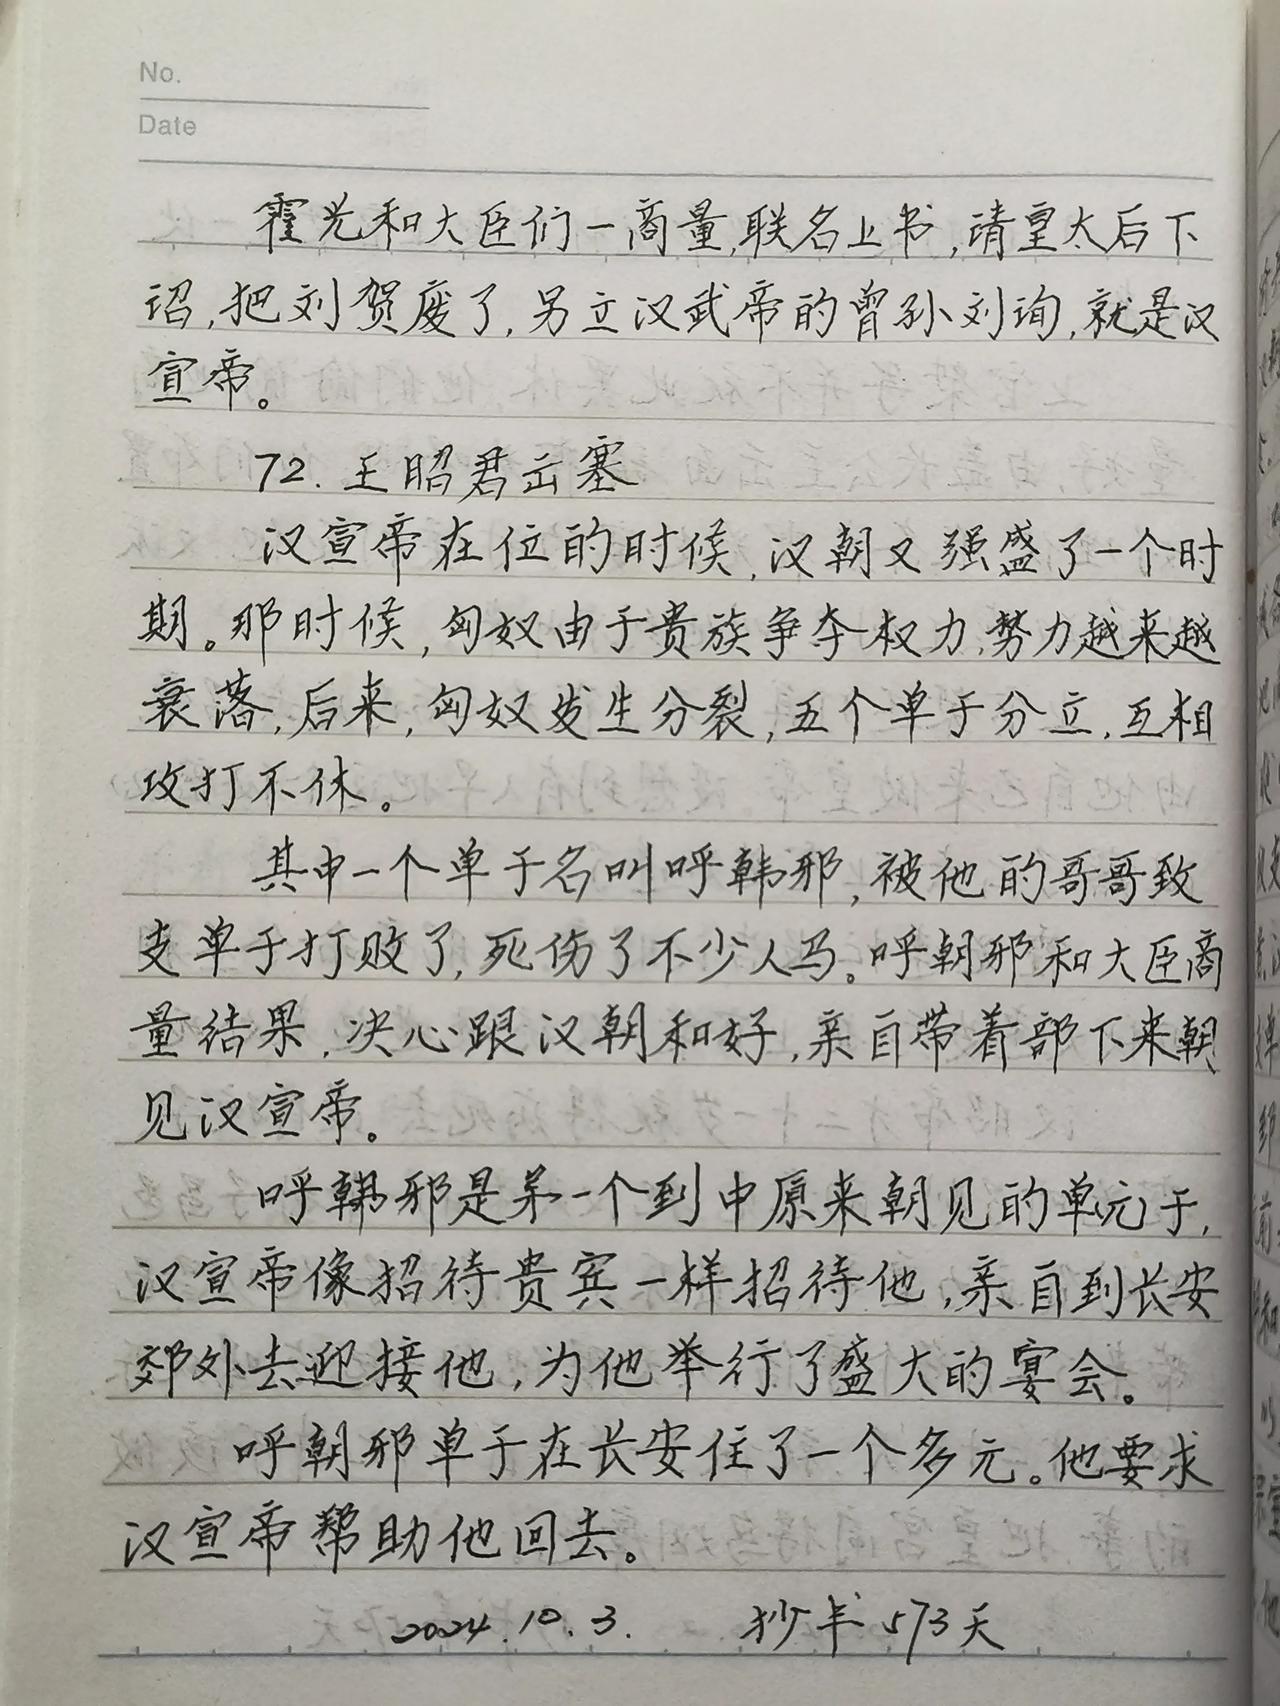 No.
Date
霍光和大臣们一商量,联名上书,请皇太后下
诏,把刘贺废了,另立汉武帝的曾孙刘询,就是汉
宣帝。
72.王昭君出塞
汉宣帝在位的时候,汉朝又强盛了一个时
期。那时候,匈奴由于贵族争夺权力,势力越来越
衰落,后来,匈奴发生分裂,五个单于分立,互相
攻打不休。
其中一个单于名叫呼韩邪,被他的哥哥致
支单于打败了,死伤了不少人马。呼朝邪和大臣商
量结果,决心跟汉朝和好,亲自带着部下来朝
见汉宣帝。
呼韩邪是第一个到中原来朝见的单元于,
汉宣帝像招待贵宾一样招待他,亲自到长安
郊外去迎接他,为他举行了盛大的宴会。
呼朝邪单于在长安住了一个多元。他要求
汉宣帝帮助他回去。
2024.10.3. 抄书573天